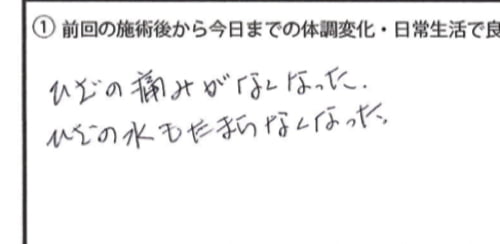 ① 前回の施術後から今日までの体調変化・日常生活で良
ひざの痛みがなくなった.
ひざの水もたまらなくなった。